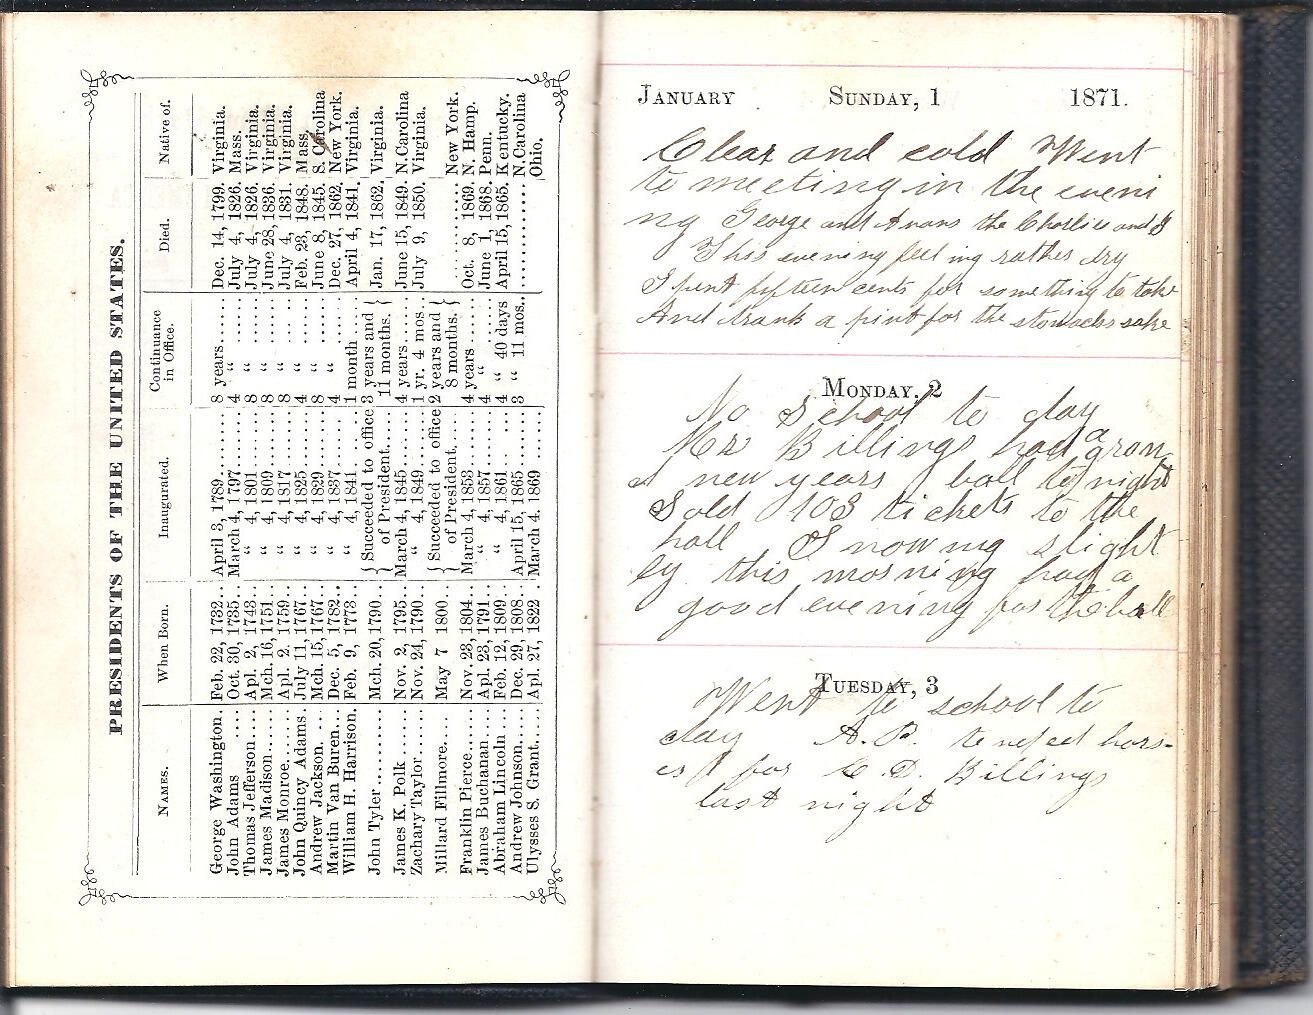 PRESIDENTS OF THE UNITED STATES.
NAMES. When Born. Inaugurated. Continuance in Office. Died. Native of.
George Washington. Feb. 22, 1732.. April 3, 1789....... 8 years...... Dec. 14, 1799. Virginia.
John Adams .... Oct. 30, 1735.. March 4, 1797...... 4 “ ...... July 4, 1826. Mass.
Thomas Jefferson.... Apl. 2, 1743.. “ 4, 1801...... 8 “ ...... July 4, 1826. Virginia.
James Madison...... Mch. 16, 1751.. “ 4, 1809...... 8 “ ...... June 28, 1836. Virginia.
James Monroe...... Apl. 2, 1759.. “ 4, 1817...... 8 “ ...... July 4, 1831. Virginia.
John Quincy Adams. July 11, 1767.. “ 4, 1825...... 4 “ ...... Feb. 23, 1848. Mass.
Andrew Jackson. ... Mch. 15, 1767.. “ 4, 1829...... 8 “ ...... June 8, 1845. S. Carolina
Martin Van Buren... Dec. 5, 1782.. “ 4, 1837...... 4 “ ...... Dec. 27, 1862. New York.
William H. Harrison. Feb. 9, 1773.. “ 4, 1841...... 1 month .... April 4, 1841. Virginia.
John Tyler......... Mch. 20, 1790 { Succeeded to office of President.... } 3 years and 11 months. } Jan. 17, 1862. Virginia.
James K. Polk ..... Nov. 2, 1795.. March 4, 1845...... 4 years ..... June 15, 1849. N. Carolina
Zachary Taylor...... Nov. 24, 1790.. “ 4, 1849...... 1 yr. 4 mos. July 9, 1850. Virginia.
Millard Fillmore.... May 7 1800. { Succeeded to office of President.... } 2 years and 8 months. } .......... New York.
Franklin Pierce..... Nov. 23, 1804.. March 4, 1853...... 4 years ..... Oct. 8, 1869. N. Hamp.
James Buchanan ... Apl. 23, 1791.. “ 4, 1857...... 4 “ ...... June 1, 1868. Penn.
Abraham Lincoln ... Feb. 12, 1809 “ 4, 1861...... 4 “ 40 days April 15, 1865. Kentucky.
Andrew Johnson.... Dec. 29, 1808.. April 15, 1865..... 3 “ 11 mos.. .......... N. Carolina
Ulysses S. Grant.... Apl. 27, 1822 .. March 4, 1869 ..... Ohio.
JANUARY SUNDAY, 1 1871.
Clear and cold Went
to meeting in the eveni
ng George and the Charlie and I
This evening feeling rather dry
Spent fifteen cents for something to take
And drank a pint for the stomachs sake
MONDAY, 2
No School to day
Mr Billings had a gran
d new years ball to night
Sold 103 tickets to the
ball Snowing slight
ly this morning had a
good evening for the ball
TUESDAY, 3
Went to school to
day A. B. tended hors-
es for C. D. Billings
last night